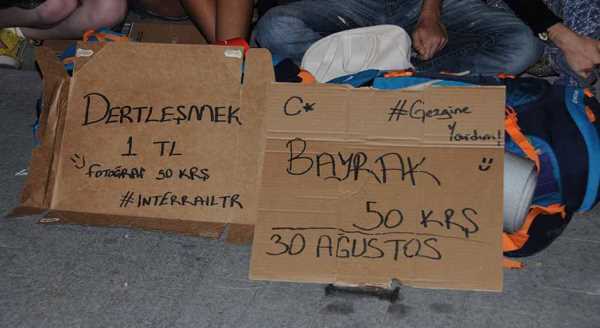 DERTLEŞMEK
1 TL
FOTOĞRAF 50 KRŞ
#INTERRAILTR
C* #Gezgine
Yardım!
BAYRAK
50 KRŞ
30 AĞUSTOS